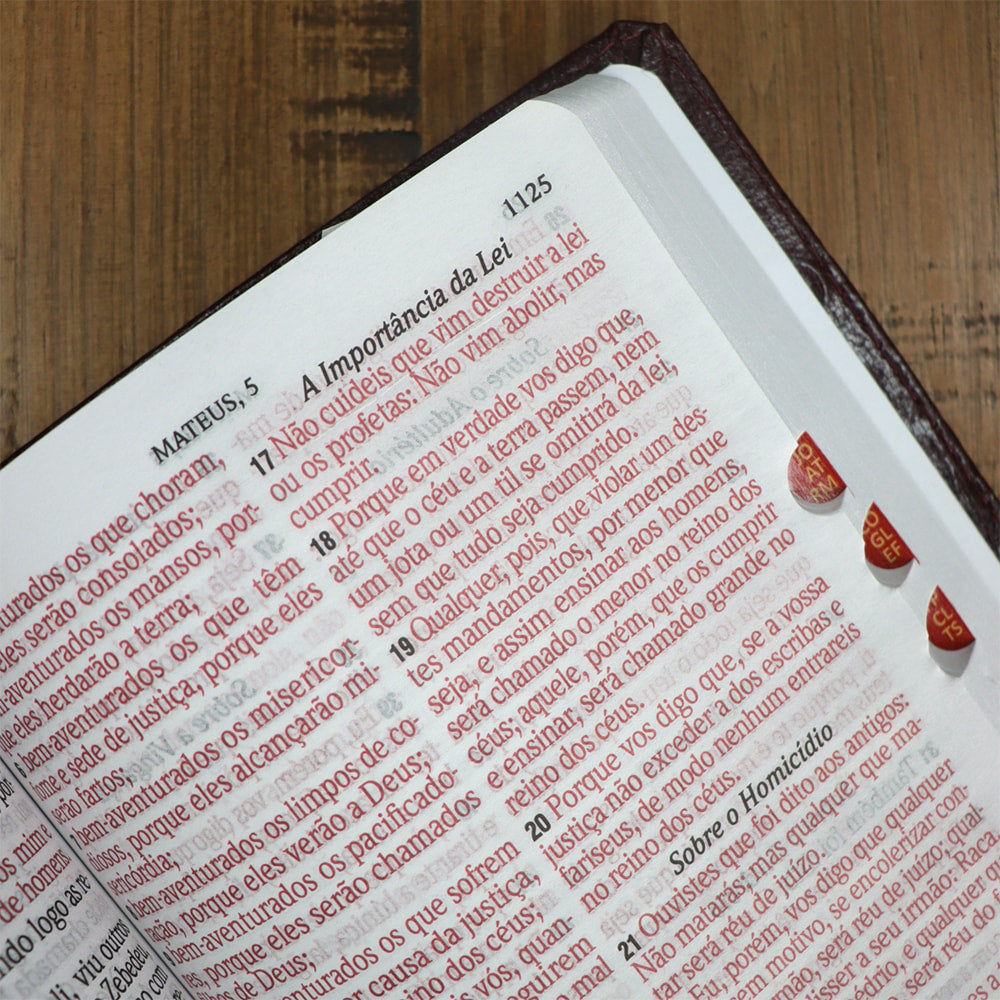 MATEUS, 5
1125
urados os que choram,
eles serão consolados;
m-aventurados os mansos, por-
que eles herdarão a terra;
6 bem-aventurados os que têm
fome e sede de justiça, porque eles
serão fartos;
bem-aventurados os misericor-
diosos, porque eles alcançarão mi-
sericórdia;
bem-aventurados os limpos de co-
ração, porque eles verão a Deus;
bem-aventurados os pacificado-
res, porque eles serão chamados
filhos de Deus;
turados os que sofrem
por causa da justiça,
no dos céus;
vos, quan-
seguirem
mal
A Importância da Lei
17 Não cuideis que vim destruir a lei
ou os profetas: Não vim abolir, mas
cumprir.
18 Porque em verdade vos digo que,
até que o céu e a terra passem, nem
um jota ou um til se omitirá da lei,
sem que tudo seja cumprido.
19 Qualquer, pois, que violar um des-
tes mandamentos, por menor que
seja, e assim ensinar aos homens,
será chamado o menor no reino dos
céus; aquele, porém, que os cumprir
e ensinar, será chamado grande no
reino dos céus.
20 Porque vos digo que, se a vossa
justiça não exceder a dos escribas e
fariseus, de modo nenhum entrareis
no reino dos céus.
Sobre o Homicídio
21 Ouvistes que foi dito aos antigos:
Não matarás; mas qualquer que ma-
tar será réu de juízo.
Eu, porém, vos digo que qualquer
em motivo, se encolerizar con-
mão, será réu de juízo; e qual
isser a seu irmão: Raca
édrio, e qualquer q
será réu do
os mime
de homens
ndo logo as re
li, viu outros
Zebedeu
co com
JO
AT
RM
O
G
EF
CL
TS